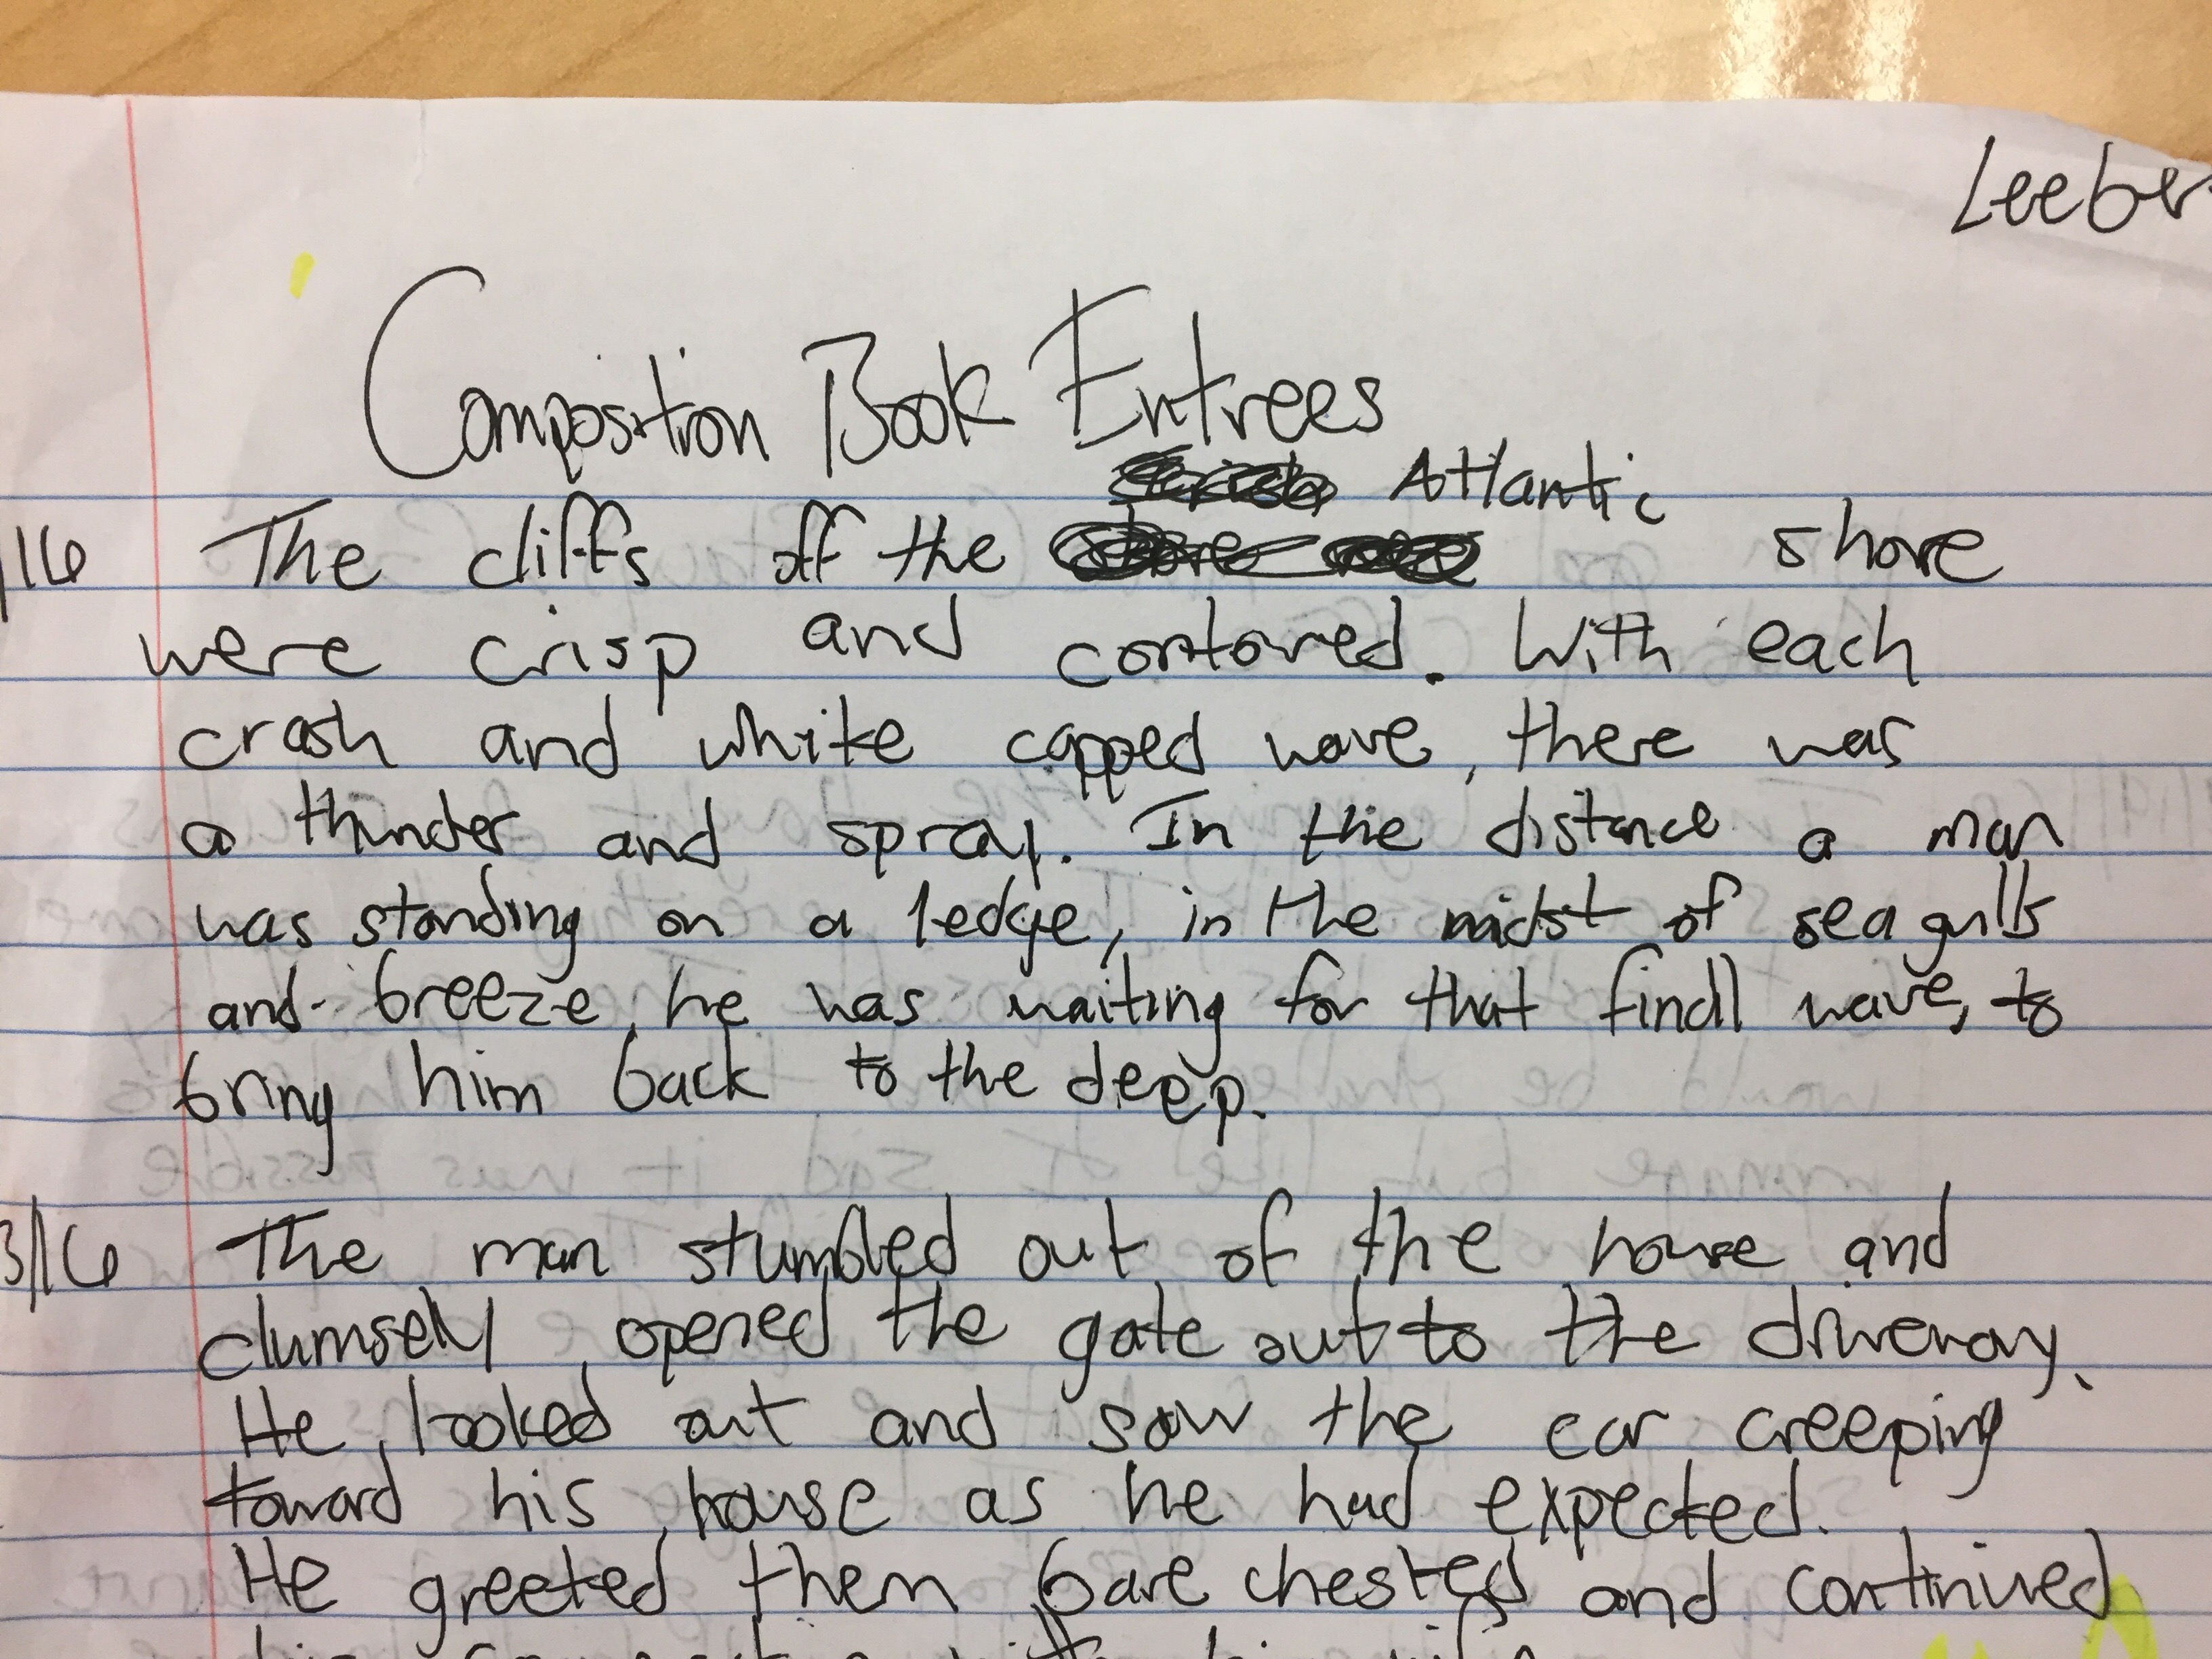 Leeber
Composition Book Entrees
Atlantic
/16 The cliffs off the shore
were crisp and contored. With each
crash and white capped wave, there was
a thunder and spray. In the distance a man
was standing on a ledge, in the midst of seagulls
and breeze, he was waiting for that finall wave, to
bring him back to the deep.
3/16 The man stumbled out of the house and
clumsely opened the gate out to the driveway.
He looked out and saw the car creeping
toward his house as he had expected.
He greeted them bare chested and continued
his with his